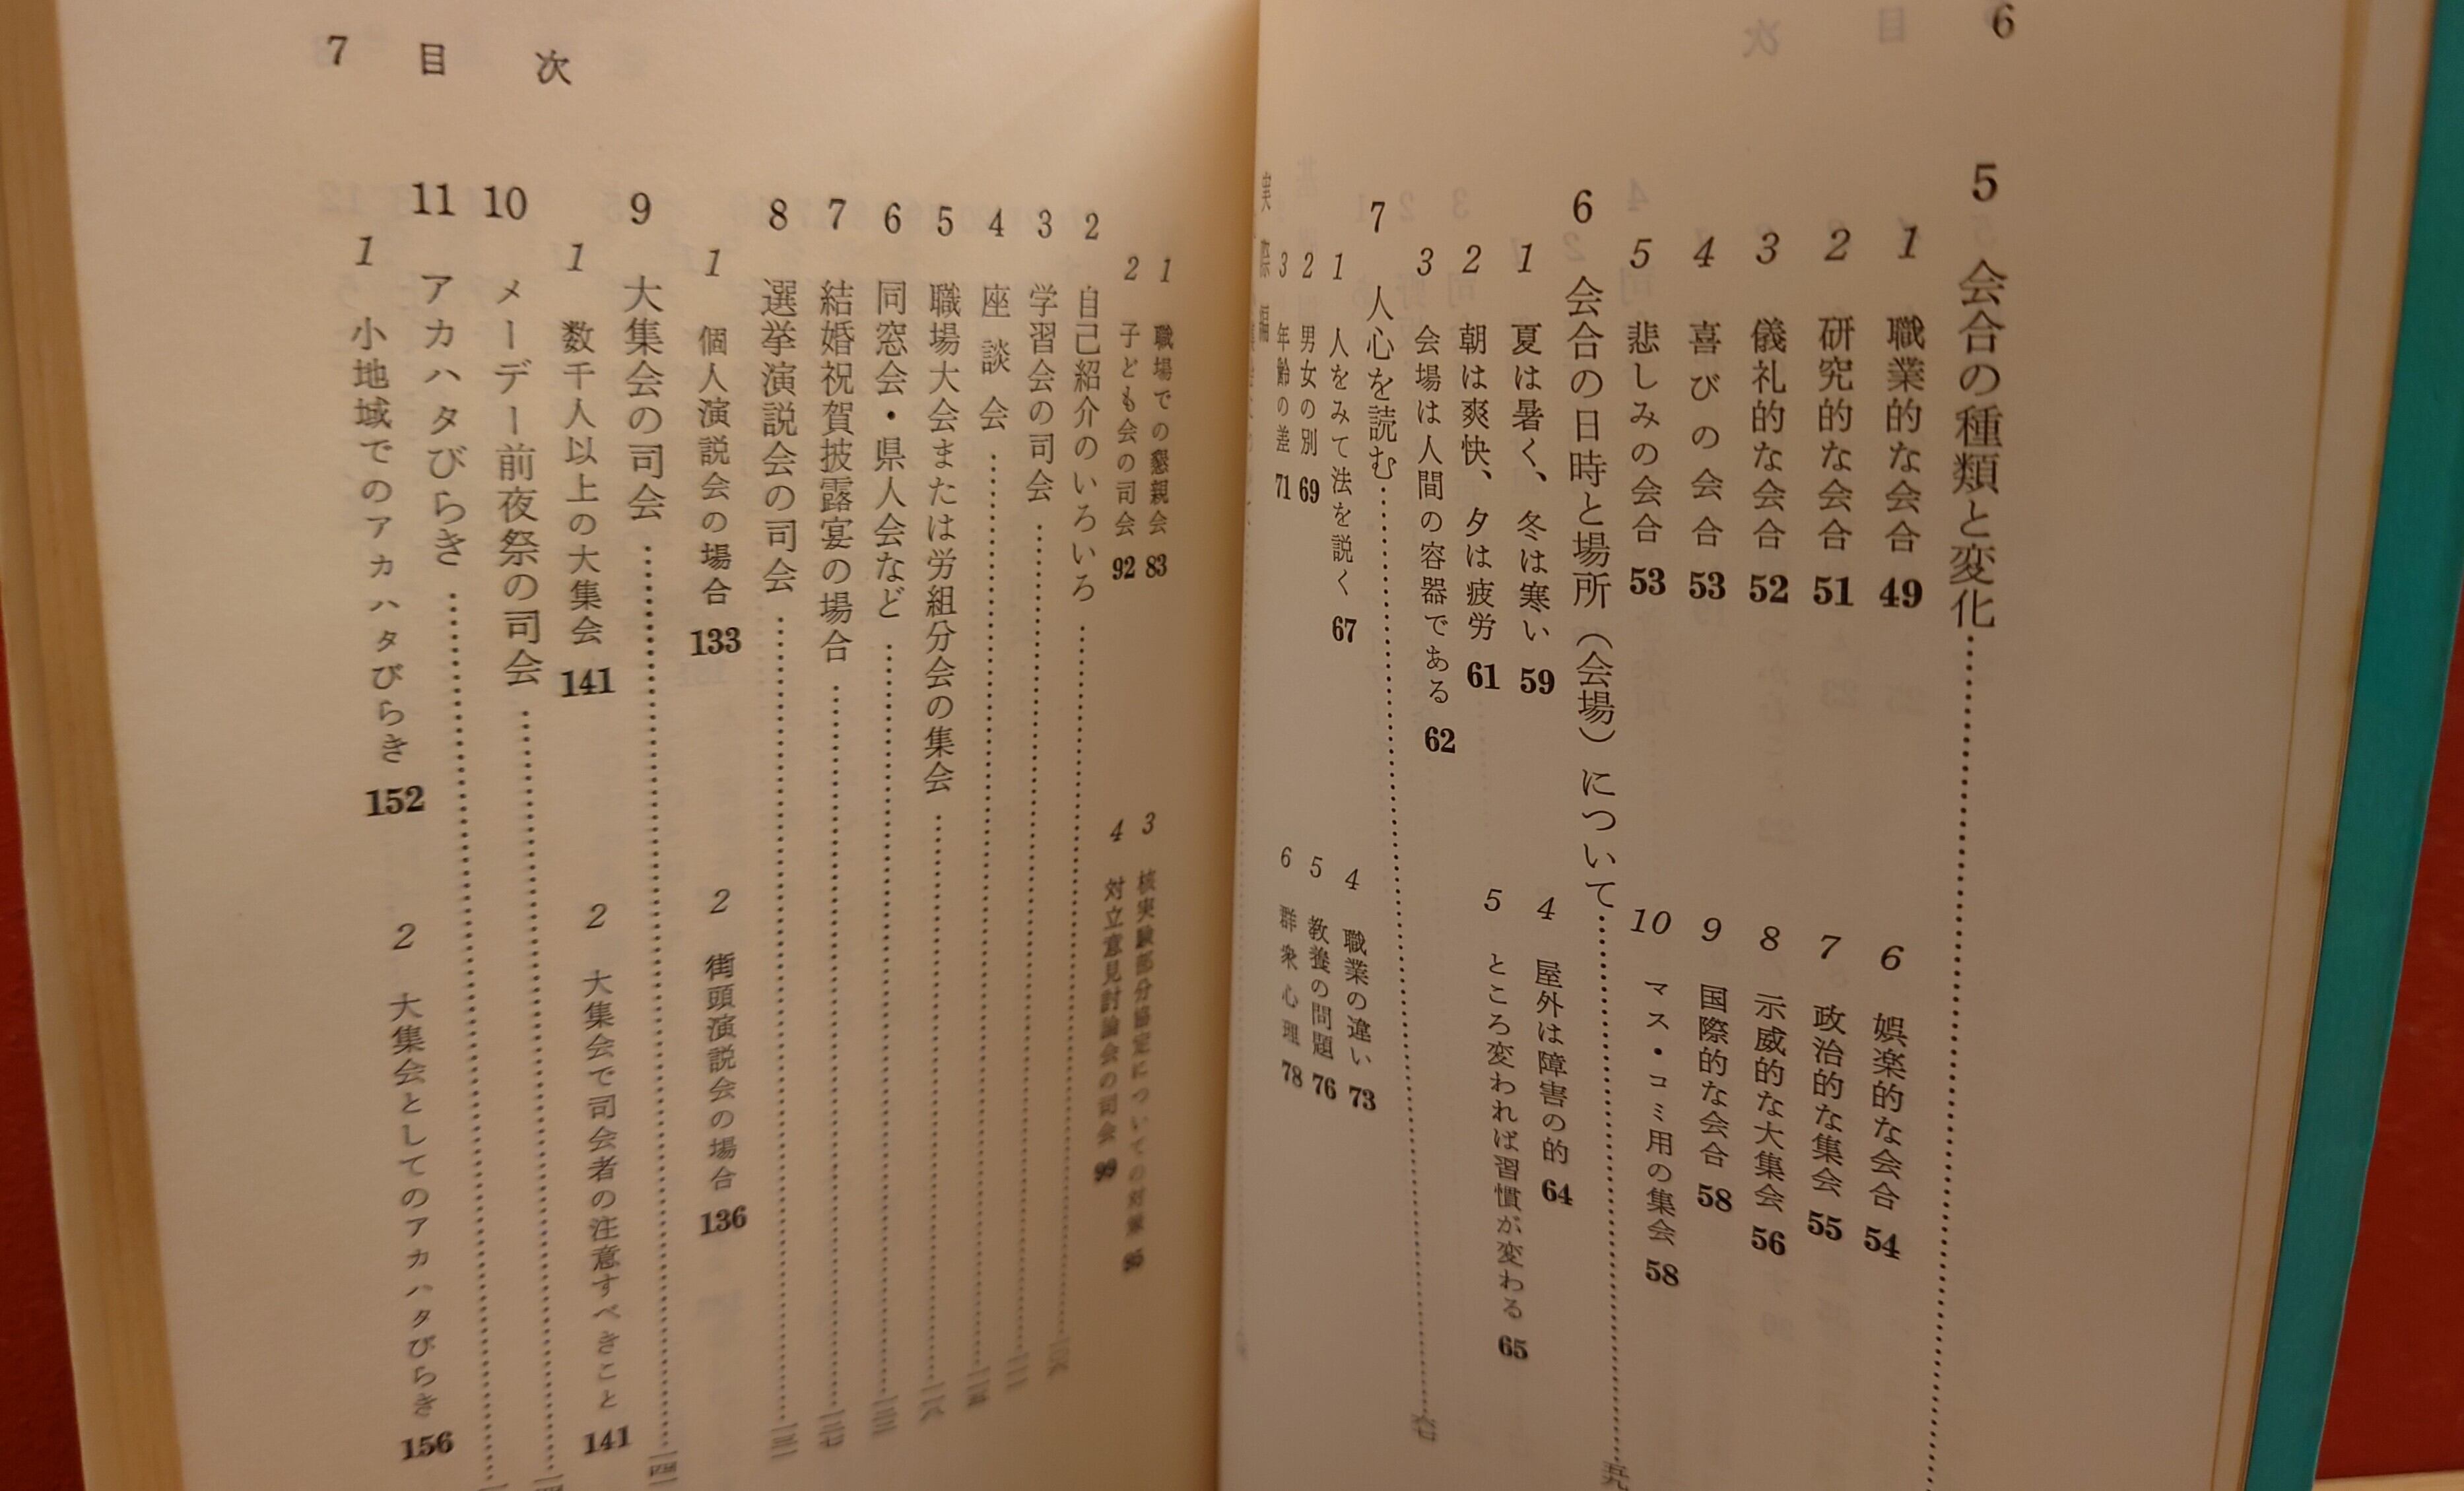 6
5 会合の種類と変化
1 職業的な会合 49
2 研究的な会合 51
3 儀礼的な会合 52
4 喜びの会合 53
5 悲しみの会合 53
6 娯楽的な会合 54
7 政治的な集会 55
8 示威的な大集会 56
9 国際的な会合 58
10 マス・コミ用の集会 58
6 会合の日時と場所(会場)について
1 夏は暑く、冬は寒い 59
2 朝は爽快、夕は疲労 61
3 会場は人間の容器である 62
4 屋外は障害の的 64
5 ところ変われば習慣が変わる 65
7 人心を読む
1 人をみて法を説く 67
2 男女の別 69
3 年齢の差 71
4 職業の違い 73
5 教養の問題 76
6 群衆心理 78
実際編
7 目次
1 職場での懇親会 83
2 子ども会の司会 92
3 核実験部分協定についての対策 95
4 対立意見討論会の司会 99
2 自己紹介のいろいろ
3 学習会の司会
4 座談会
5 職場大会または労組分会の集会
6 同窓会・県人会など
7 結婚祝賀披露宴の場合
8 選挙演説会の司会
1 個人演説会の場合 133
2 街頭演説会の場合 136
9 大集会の司会
1 数千人以上の大集会 141
2 大集会で司会者の注意すべきこと 141
10 メーデー前夜祭の司会
11 アカハタびらき
1 小地域でのアカハタびらき 152
2 大集会としてのアカハタびらき 156